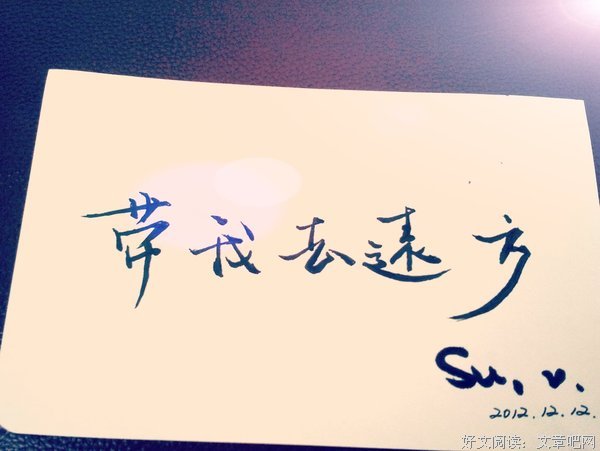 带我去遠方
Su. v.
2012.12.12.
好文阅读：文章吧网